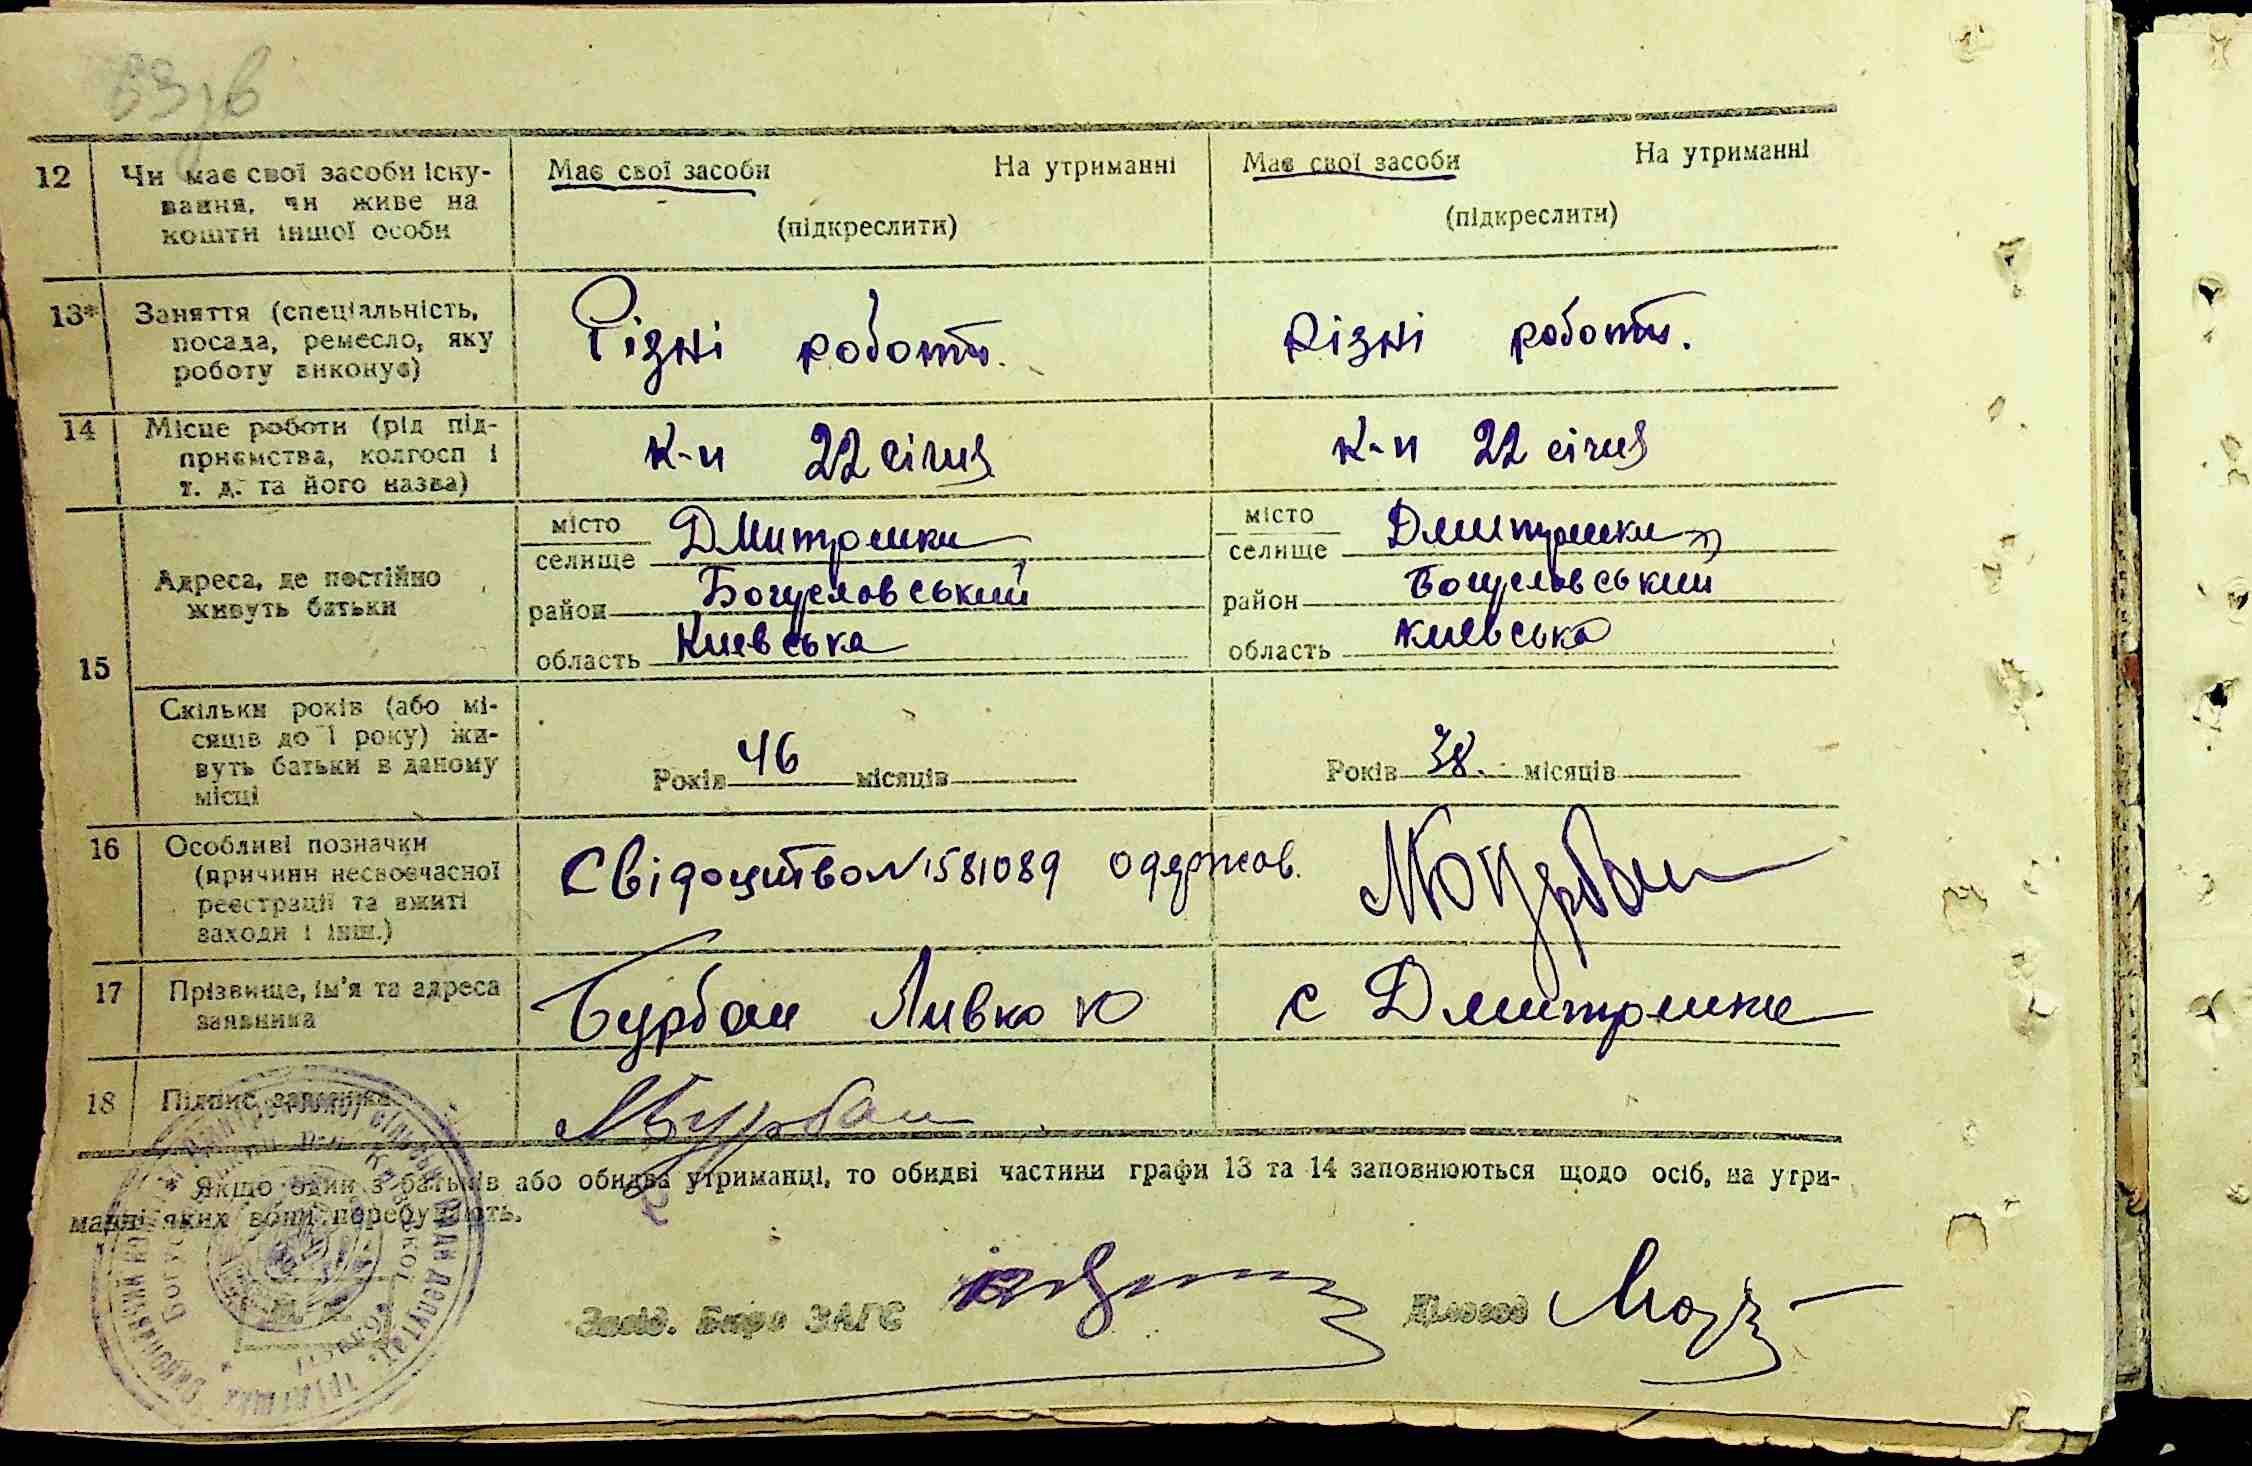 12 Чи має свої засоби існу-
вання, чи живе на
кошти іншої особи
Має свої засоби На утриманні
(підкреслити)
Має свої засоби На утриманні
(підкреслити)
13* Заняття (спеціальність,
посада, ремесло, яку
роботу виконує)
Різні роботи.
Різні роботи.
14 Місце роботи (рід під-
приємства, колгосп і
т. д. та його назва)
к-п 22 січня
к-п 22 січня
15 Адреса, де постійно
живуть батьки
місто
селище Дмитрошки
район Богуславський
область Киевська
місто
селище Дмитрошки
район Богуславський
область Киевська
Скільки років (або мі-
сяців до 1 року) жи-
вуть батьки в даному
місці
Років 46 місяців
Років 38. місяців
16 Особливі позначки
(причини несвоєчасної
реєстрації та вжиті
заходи і інш.)
Свідоцтво N 1581089 одержав.
17 Прізвище, ім'я та адреса
заявника
Бурбан Ливко Ю с Дмитрошки
18 Підпис заявника
Бурбан
* Якщо один з батьків або обидва утриманці, то обидві частини графи 13 та 14 заповнюються щодо осіб, на утри-
манні яких вони перебувають.
Завід. Бюро ЗАГС Діловод